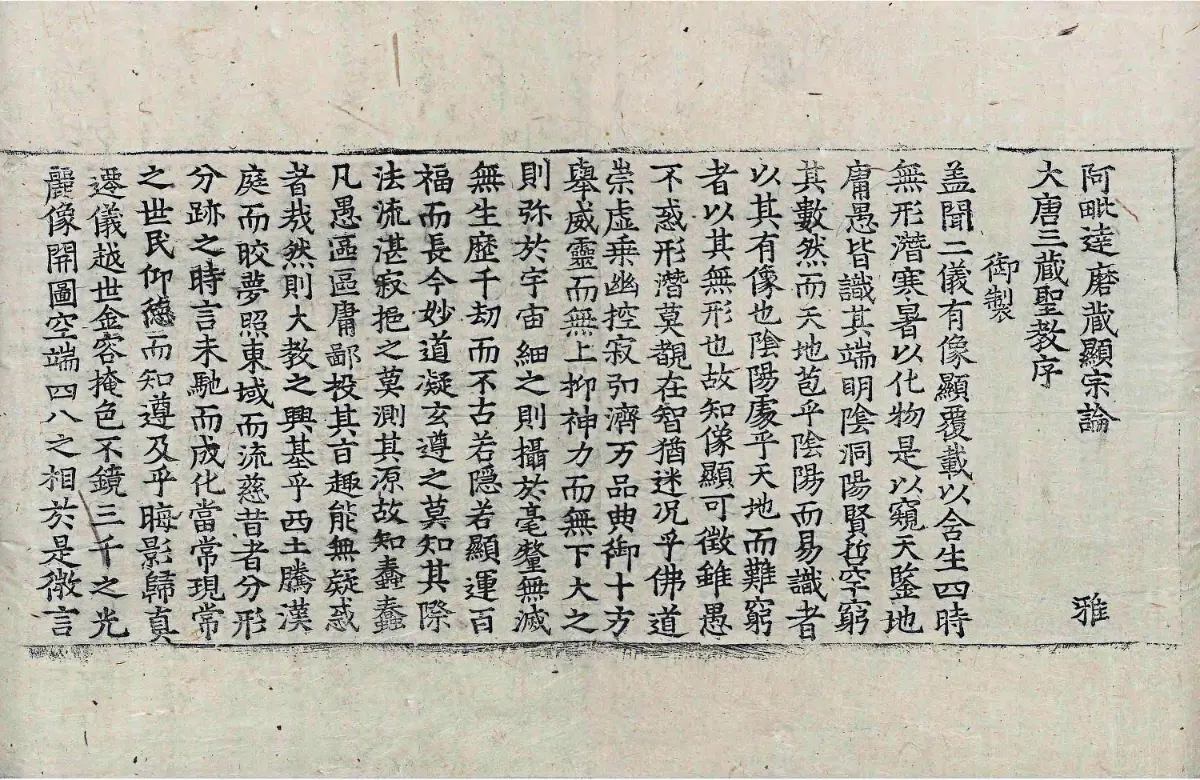 阿毗達磨藏顯宗論 雅
大唐三藏聖教序
御製
盖聞二儀有像顯覆載以含生四時
無形潛寒暑以化物是以窺天鑒地
庸愚皆識其端明陰洞陽賢哲罕窮
其數然而天地苞乎陰陽而易識者
以其有像也陰陽處乎天地而難窮
者以其無形也故知像顯可徵雖愚
不惑形潛莫覩在智猶迷况乎佛道
崇虛乗幽控寂弘濟万品典御十方
舉威靈而無上抑神力而無下大之
則弥於宇宙細之則攝於毫釐無滅
無生歷千劫而不古若隱若顯運百
福而長今妙道凝玄遵之莫知其際
法流湛寂挹之莫測其源故知蠢蠢
凡愚區區庸鄙投其旨趣能無疑惑
者㦲然則大教之興基乎西土騰漢
庭而晈夢照東域而流慈昔者分形
分跡之時言未馳而成化當常現常
之世民仰德而知遵及乎晦影歸真
遷儀越世金容掩色不鏡三千之光
麗像開圖空端四八之相於是微言